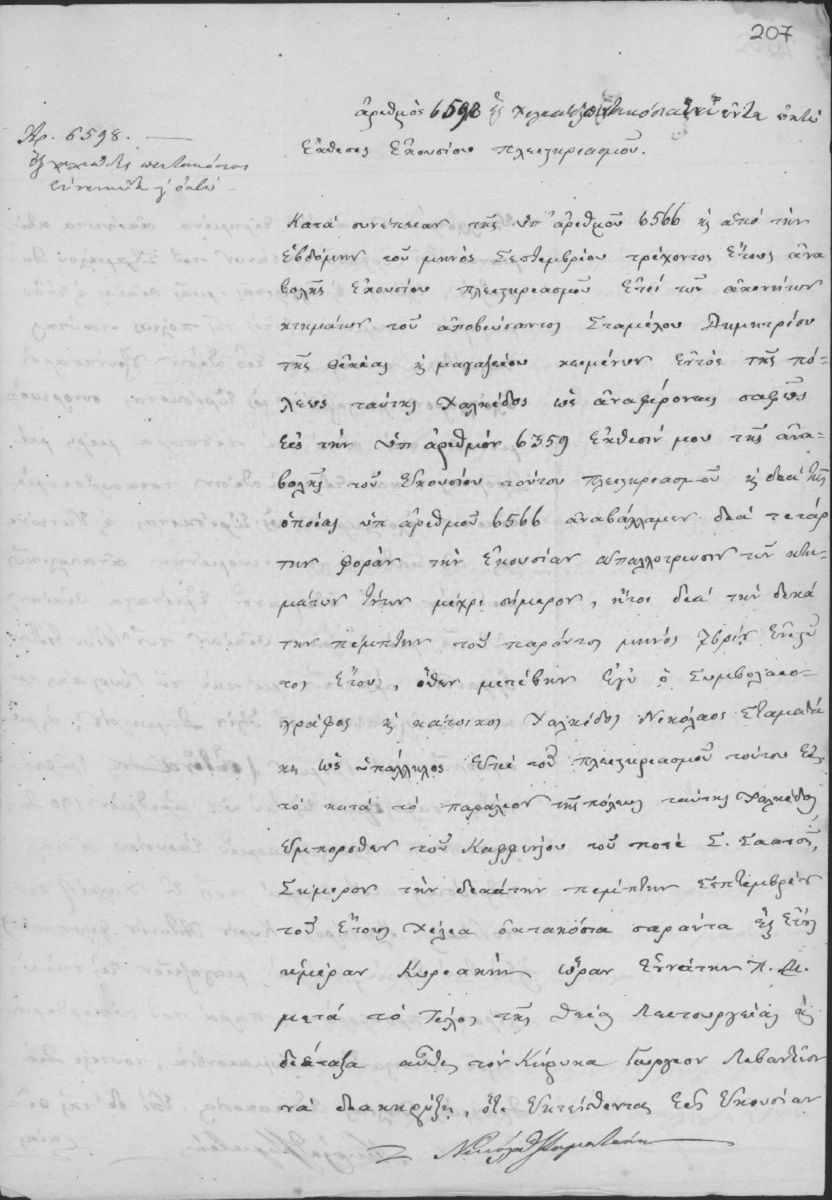 207
ἀριθμὸς 6598 ἓξ χιλιάδες πεντακόσια ἐννενῆντα ὀκτώ
Ἀρ. 6598. —
ἓξ χιλιάδες πεντακόσια
ἐννενῆντα ὀκτώ —
Ἔκθεσις Ἑκουσίου Πλειστηριασμοῦ.
Κατὰ συνέπειαν τῆς ὑπ' ἀριθμοῦ 6566 κ ἀπὸ τὴν
ἑβδόμην τοῦ μηνὸς Σεπτεμβρίου τρέχοντος ἔτους ἀνα
βολῆς ἑκουσίου πλειστηριασμοῦ ἐπὶ τῶν ἀκινήτων
κτημάτων τοῦ ἀποβιώσαντος Σταμέλου Δημητρίου
τῆς οἰκίας κ μαγαζείου κειμένων ἐντὸς τῆς πό-
λεως ταύτης Χαλκίδος ὡς ἀναφέρονται σαφῶς
εἰς τὴν ὑπ ἀριθμὸν 6359 ἔκθεσίν μου τῆς ἀνα-
βολῆς τοῦ ἑκουσίου τούτου πλειστηριασμοῦ κ διὰ τῆς
ὁποίας ὑπ ἀριθμοῦ 6566 ἀναβάλλαμεν διὰ τετάρ
την φορὰν τὴν ἑκουσίαν ἀπαλλοτρίωσιν τῶν κτη-
μάτων τούτων μέχρι σήμερον, ἤτοι διὰ τὴν δεκά
την πέμπτην τοῦ παρόντος μηνὸς 7βρίου ἐνεστῶ
τος ἔτους, ὅθεν μετέβην ἐγὼ ὁ Συμβολαιο-
γράφος κ κάτοικος Χαλκίδος Νικόλαος Σταματά
κη ὡς ὑπάλληλος ἐπὶ τοῦ πλειστηριασμοῦ τούτου εἰς
τὸ κατὰ τὸ παράλιον τῆς πόλεως ταύτης Χαλκίδος
ἔμπροσθεν τοῦ Καφφενείου τοῦ ποτὲ Σ.
Σήμερον τὴν δεκάτην πέμπτην Σεπτεμβρίου
τοῦ ἔτους χίλια ὀκτακόσια σαράντα ἓξ ἔτος
ἡμέραν Κυριακὴν ὥραν ἐννάτην π. μ.
μετὰ τὸ τέλος τῆς θείας Λειτουργείας κ
διέταξα αὖθις τὸν Κήρυκα Γεώργιον Λεβαντῖνον
νὰ διακηρύξῃ, ὅτι ἐκτείθενται εἰς ἑκουσίαν
Νικόλαος Σταματάκη